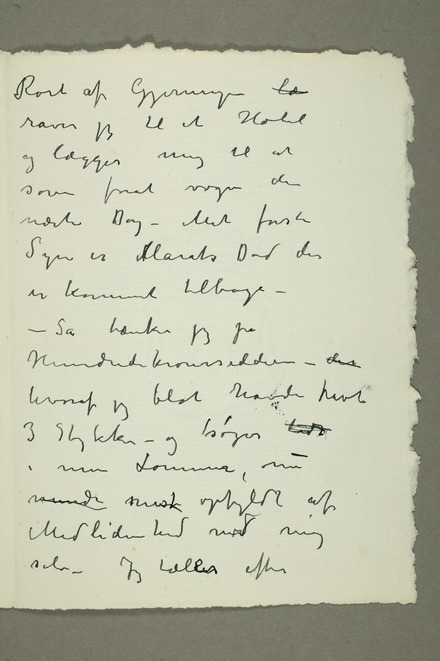 Rørt af Gjerningen
raver jeg til et Hotel
og lægger mig til at
sove forat vogne den
næste Dag – Mit første
Syn er Marats Død der
er kommet tilbage –
– Så tænker jeg på
Hundredekroneseddelen – der
hvoraf jeg blot havde
3 Stykker – og søger
i min Lomme, nu
opfyldt af
Medlidenhed med mig
selv – Jeg tæller efter